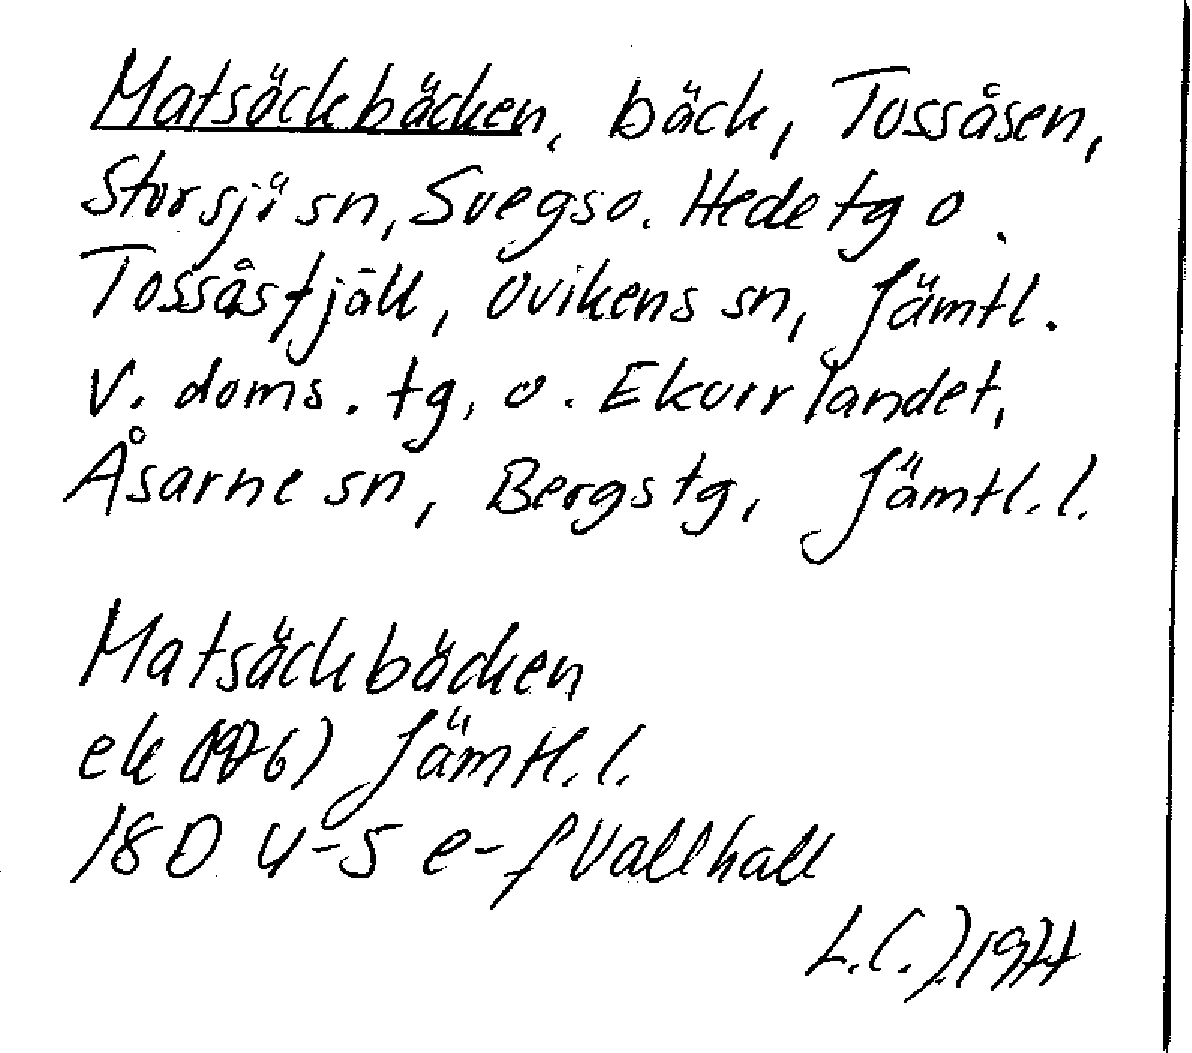 Matsäckbäcken, bäck, Tossåsen,
Storsjö sn, Svegs o. Hede tg o.
Tossåsfjäll, Ovikens sn, Jämtl.
V. doms. tg, o. Ekorrlandet,
Åsarne sn, Bergs tg, Jämtl. l.
Matsäckbäcken
ek (1976) Jämtl. l.
18D 4-5 e-f Vallhall
L.C.J. 1977